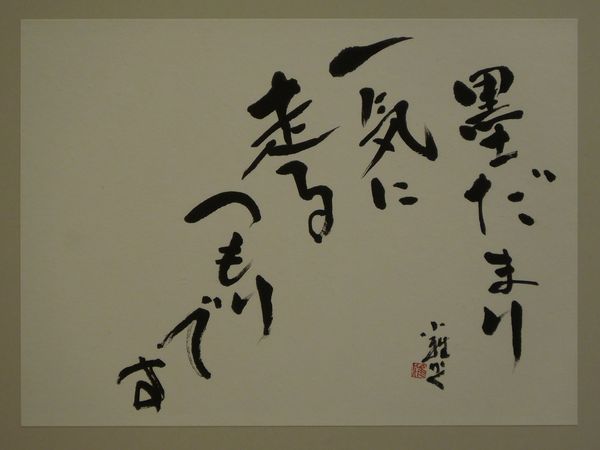 墨だまり
一気に
走る
つもり
です